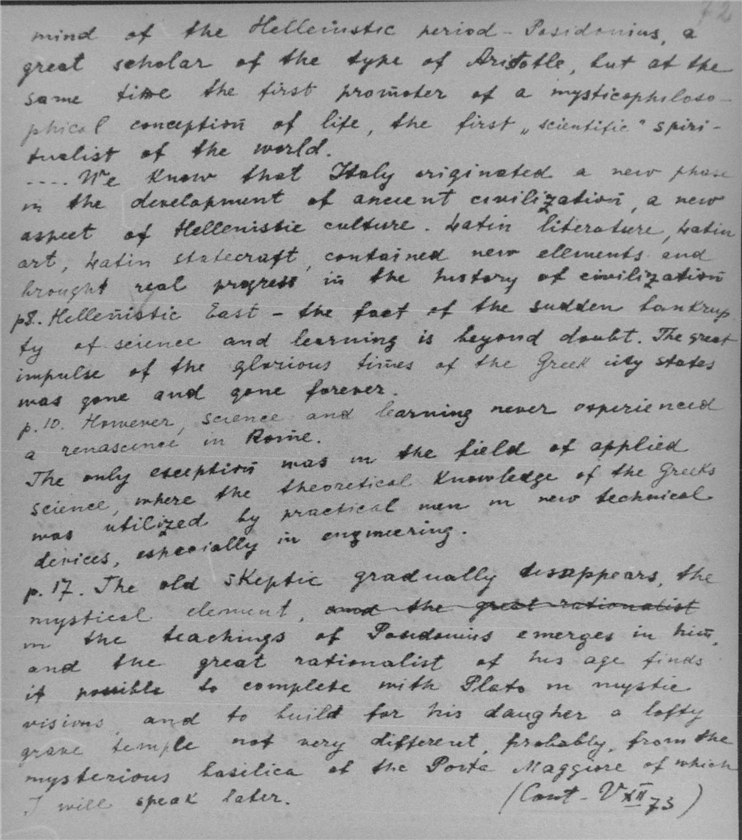 72
mind of the Hellenistic period - Posidonius, a
great scholar of the type of Aristotle, but at the
same time the first promoter of a mysticophiloso-
phical conception of life, the first „scientific" spiri-
tualist of the world.
.... We know that Italy originated a new phase
in the development of ancient civilization, a new
aspect of Hellenistic culture. Latin literature, Latin
art, Latin statecraft, contained new elements and
brought real progress in the history of civilization
p8. Hellenistic East - the fact of the sudden bankrup
ty of science and learning is beyond doubt. The great
impulse of the glorious times of the Greek city states
was gone and gone forever.
p. 10. However, science and learning never experienced
a renascence in Rome.
The only exception was in the field of applied
science, where the theoretical knowledge of the Greeks
was utilized by practical men in new technical
devices, especially in engineering.
p. 17. The old skeptic gradually disappears, the
mystical element, and the great rationalist
in the teachings of Posidonius emerges in him,
and the great rationalist of his age finds
it possible to complete with Plato in mystic
visions, and to build for his daugher a lofty
grave temple not very different, probably, from the
mysterious basilica of the Porta Maggiore of which
I will speak later. (Cont - VXII 73)